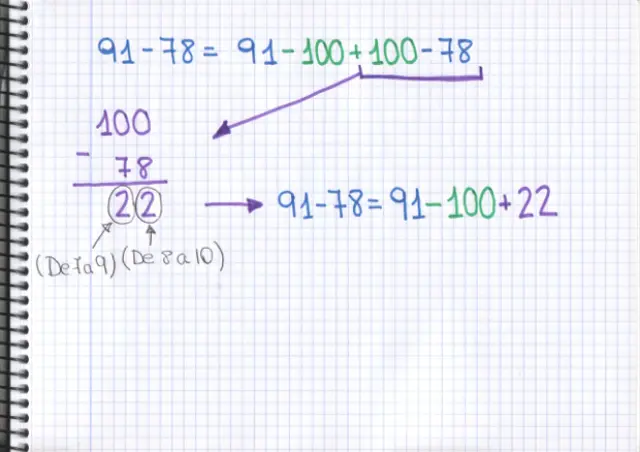 91-78= 91-100+100-78
100
- 78
22 → 91-78=91-100+22
(De 7 a 9) (De 8 a 10)